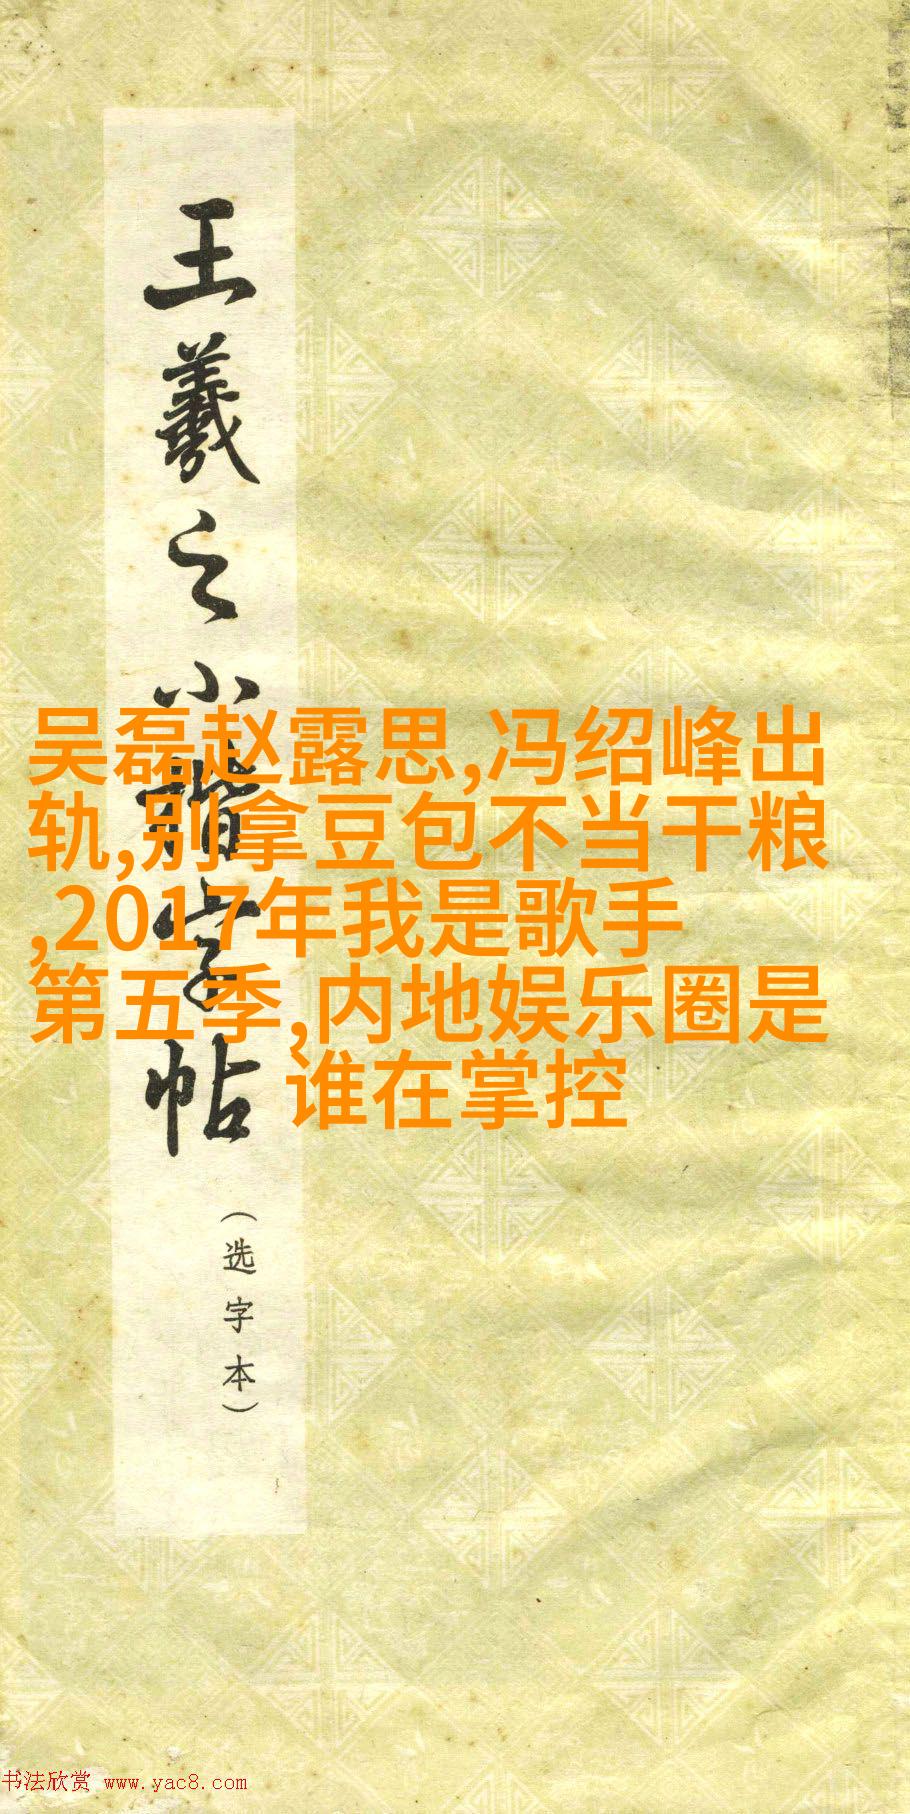 王羲之小楷字帖
(选字本)
吴磊赵露思,冯绍峰出
轨,别拿豆包不当干粮
,2017年我是歌手
第五季,内地娱乐圈是
谁在掌控
书法欣赏 www.yac8.com